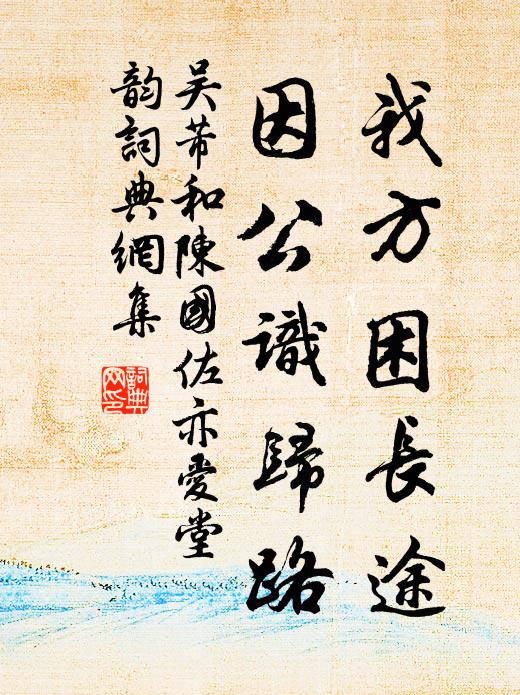 我方困長途
因公識歸路
吴芾和陳國佐亦愛堂
韵詞典網集
詞典網印